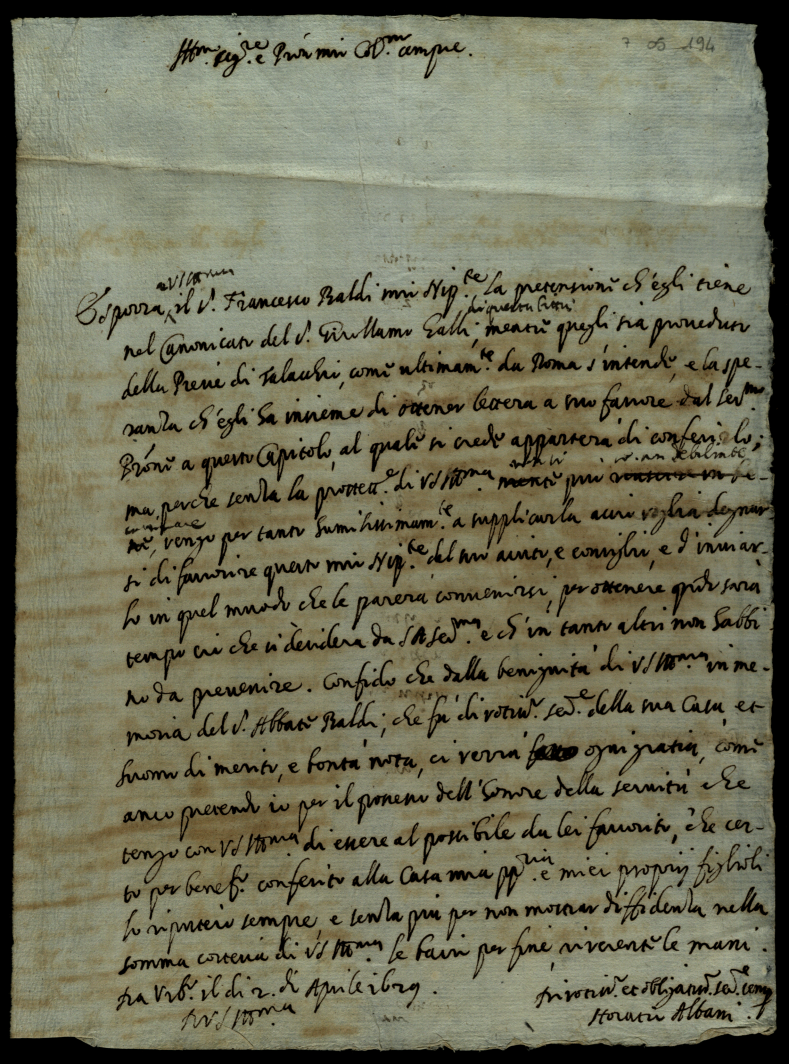 7 05 194
Ill.mo Sig.re e Prōn mio Col.mo sempre.
a VS Ill.ma
Esporrà il S.r Francesco Baldi mio Nip.te la pretensione ch'egli tiene
di questa Città
nel Canonicato del S.r Girollamo Galli, mentre quegli sia proveduto
della Pieve di Talacchi, come ultimam.te da Roma s'intende, e la spe-
ranza ch'egli ha insieme di ottener lettera a suo favore dal Ser.mo
Prōne a questo Capitolo, al quale si crede apparterà di conferirlo;
ma perche senza la protett.e di VS Ill.ma può
vengo per tanto humilissimam.te a supplicarla a voglia degnar
si di favorire questo mio Nip.te del suo aiuto, e consiglio, e d'inviar-
lo in quel muodo che le parerà convenirsi, per ottenere qn̄do sarà
tempo ciò che si desidera da S A Ser.ma e ch'in tanto altri non habbi-
no da prevenire. Confido che dalla benignità di VS Ill.ma in me-
moria del S.r Abbate Baldi, che fù divotiss.o ser.e della sua Casa, et
huomo di merito, e bontà nota, ci verrà ogni gratia, come
anco pretendo io per il possesso dell'honore della servitù che
tengo con VS Ill.ma di essere al possibile da lei favorito, che cer-
to per benef.o conferito alla Casa mia pp.ria e miei proprij figlioli
lo riputerò sempre, e senza più per non mostrar diffidenza nella
somma cortesia di VS Ill.ma le bacio per fine riverente le mani.
Da Urb.o il di 2. di Aprile 1629.
Di VS Ill.ma
Divotiss.o et obligatiss.o ser.e sempre
Horatio Albani